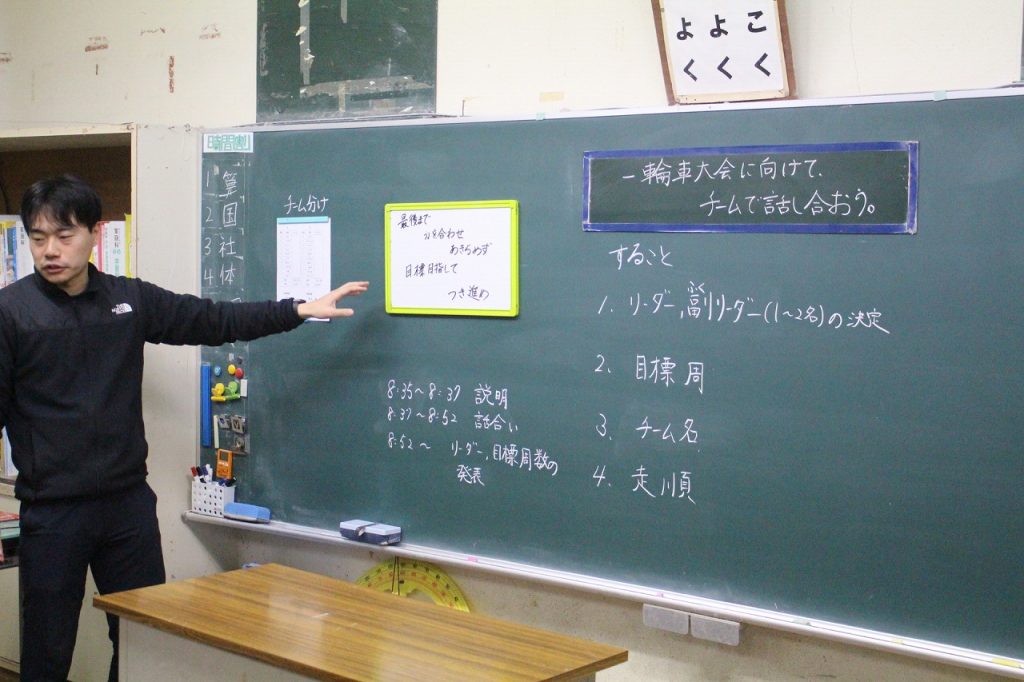 よよこ
くくく
時間割
1 算
2 国
3 社
4 体
チーム分け
最後まで
力を合わせ
あきらめず
目標目指して
つき進め
一輪車大会に向けて、
チームで話し合おう。
すること
1. リーダー, 副リーダー(1~2名)の決定
2. 目標周
3. チーム名
4. 走順
8:35~8:37 説明
8:37~8:52 話合い
8:52~ リーダー, 目標周数の
発表
THE NORTH FACE